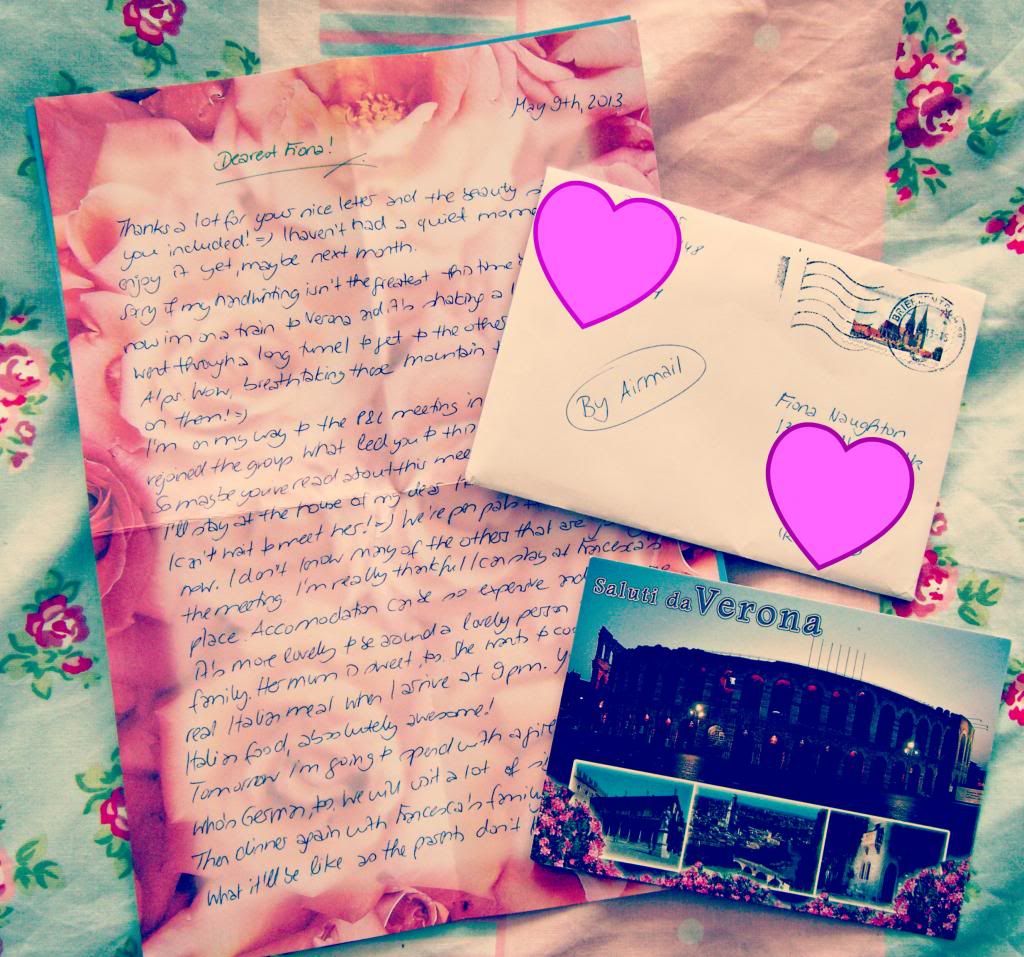 May 9th, 2013
Dearest Fiona!
Thanks a lot for your nice letter and the beauty
you included! =) I haven't had a quiet
enjoy it yet, maybe next month.
Sorry if my handwriting isn't the greatest this time
now im on a train to Verona and it's shaking a
went through a long tunnel to get to the other
Alps. Wow, breathtaking those mountain
on them! =)
I'm on my way to the meeting in
rejoined the group what led you to this
So maybe you've read about this
I'll stay at the house of my dear
I can't wait to meet her! =) We're pen pals
now. I don't know many of the others that are
the meeting. I'm really thankful I can stay at Francesca's
place. Accomodation can be so expensive and
it's more lovely to be around a lovely person
family. Her mum is sweet, to. She wants to
real Italian meal when I arrive at 9pm.
Italian food, absolutely awesome!
Tomorrow I'm going to spend with a
who's German, to. We will visit a lot of
Then dinner again with Francesca's family
What it'll be like as the parents don't
By Airmail
Fiona Naughton
Saluti da Verona